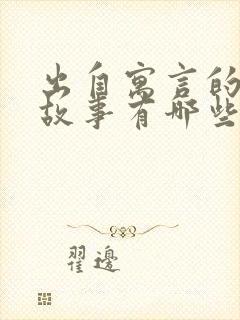 出自寓言的
故事有哪些
翟边